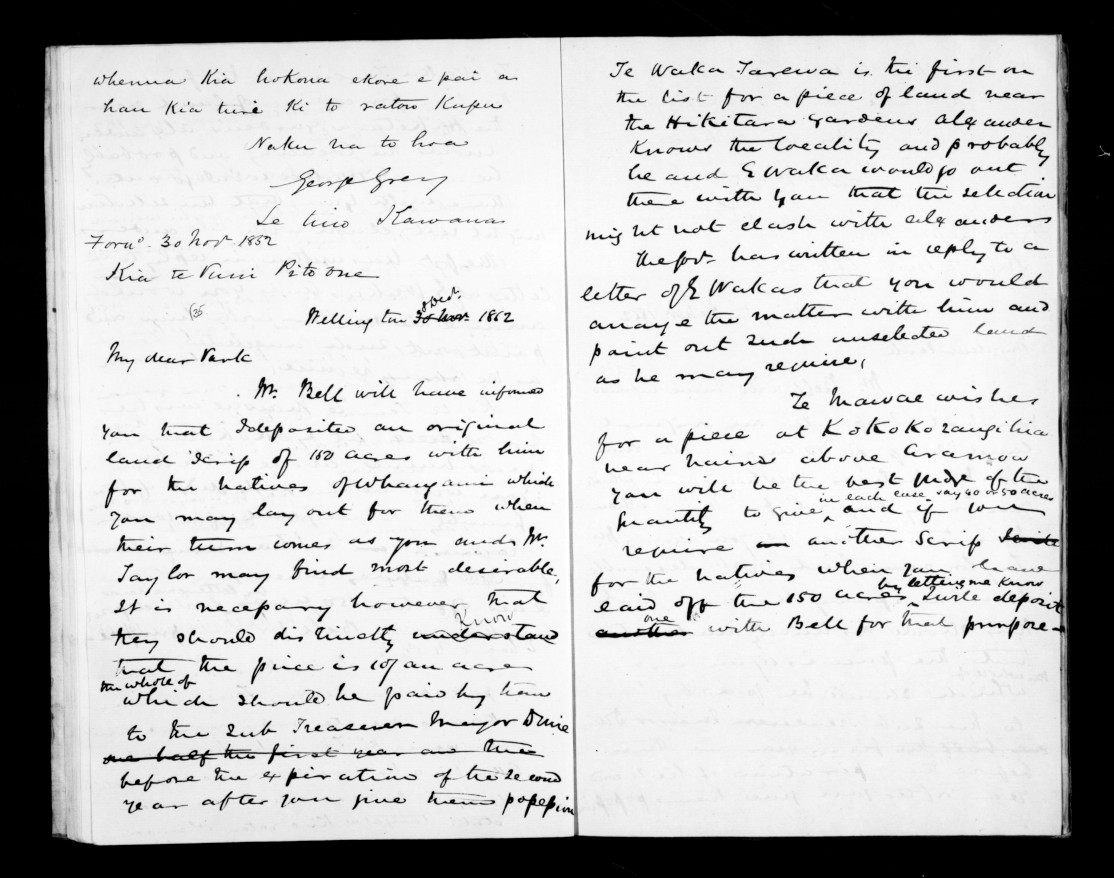 whenua kia hokona ekore e pai a
hau kia tuié ki to ratou Kupu
Naku na to hoa
George Grey
Te tino Kawana
Forwd. 30 Novr. 1852
Kia te Puni Pitone
(35
3 Decr.
Wellington 30 Novr. 1852
My dear Park
Mr. Bell will have informed
you that I deposited an original
land Scrip of 150 acres with him
for the Natives of Whanganui which
you may lay out for them when
their turn comes as you and Mr.
Taylor may find most desirable,
It is necessary however that
know
they should distinctly understand
that the price is 10/ an acre
the whole of
which should be paid by them
to the Sub Treasurer Major Durie
one half the first year and the
before the expiration of the second
year after you give them possession
Te Waka Tarewa is the first on
the list for a piece of land near
the Hikitara gardens Alexander
knows the locality and probably
he and E Waka would go out
there with you that the selection
might not clash with Alexanders
The Govr. has written in reply to a
letter of E Wakas that you would
arrange the matter with him and
point out such unselected land
as he may require,
Te Mawae wishes
for a piece at Kokokorangihia
near above Aramou
you will be the best judge of the
in each case, say 40 or 50 acres
quantity to give and if you
require an another Scrip
for the natives when you have
by letting me know
laid off the 150 acres, I will deposit
one
another with Bell for that purpose -